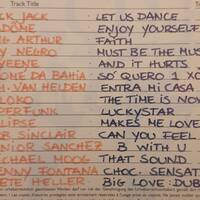 Track Title
CK JACK LET US DANCE
ENJOY YOURSELF
G ARTHUR FAITH
Y NEGRO MUST BE THE MUS
AND IT HURTS
DA BAHIA SO' QUERO 1 XO
H. VAN HELDEN ENTRA MI CASA
LOKO THE TIME IS NOW
LUCKYSTAR
LIPSE MAKES ME LOVE
OR SINCLAIR CAN YOU FEEL
NIOR SANCHEZ B WITH U
ICHAEL MOOG THAT SOUND
ENNY FONTANA CHOC. SENSATI
HELLER BIG LOVE: DUB